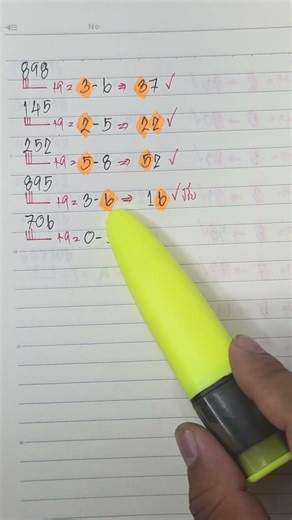 No:
898
+9 = 3-6 ⇒ 37 ✓
145
+9 = 2-5 ⇒ 22 ✓
252
+9 = 5-8 ⇒ 52 ✓
895
+9 = 3-6 ⇒ 16 ✓
706
+9 = 0-